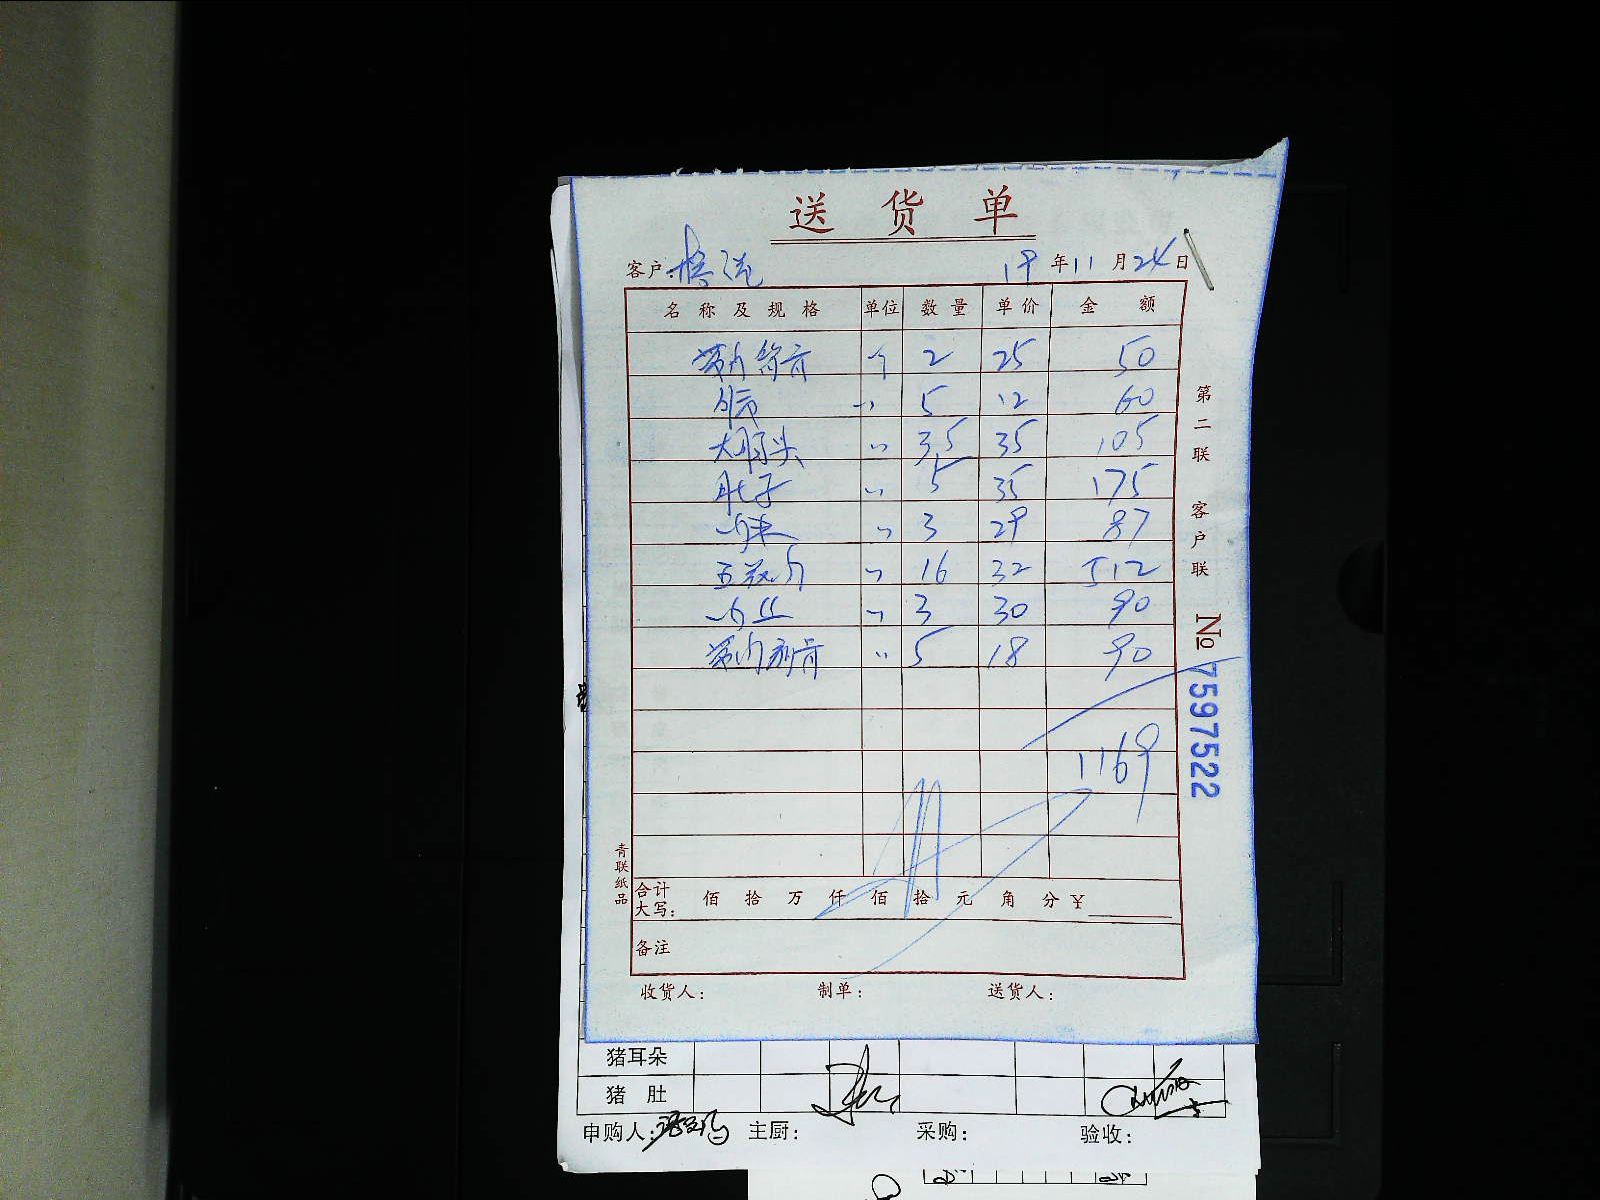 送货单
客户: 19年11月24日
名称及规格 单位 数量 单价 金额
个 2 25 50
〃 5 12 60
〃 35 35 105
肚子 〃 5 35 175
肉末 〃 3 29 87
五花肉 〃 16 32 512
肉丝 〃 3 30 90
〃 5 18 90
1169
合计大写: 佰 拾 万 仟 佰 拾 元 角 分 ¥
备注
收货人: 制单: 送货人:
第二联 客户联
№ 7597522
青联纸品
猪耳朵
猪肚
申购人: 主厨: 采购: 验收: